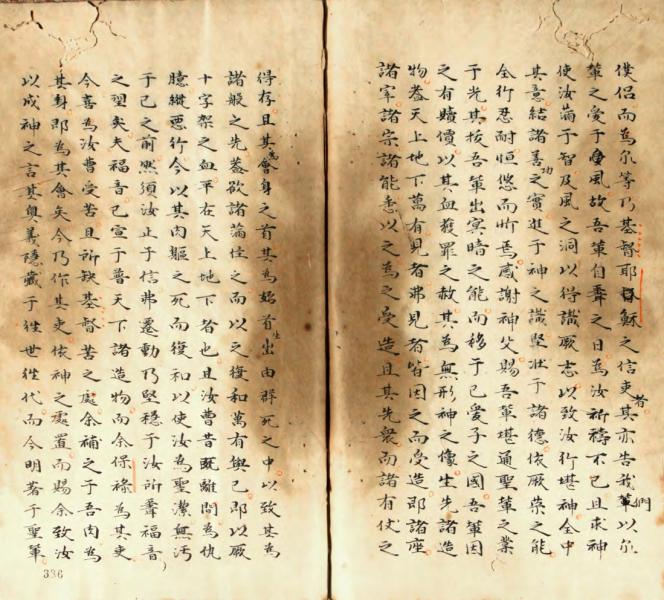 僕侶而為尔等乃基督耶穌之信吏者其亦告我軰們以尔
軰之愛于風故吾軰自聞之日為汝祈禱不已且求神
使汝滿于智及風之洞以得識厥志以致汝行堪神全中
其意結諸善功之實進于神之識堅壯于諸德依厥榮之能
全行忍耐恒悠而忻焉感謝神父賜吾軰堪通聖軰之業
于光其拔吾軰出冥暗之能而移于己愛子之國吾軰因
之有贖價以其血獲罪之赦其為無形神之像生先諸造
物蓋天上地下萬有見者弗見者皆因之而受造即諸座
諸宰諸宗諸能悉以之為之受造且其先衆而諸有仗之
得存且其為會身之首其為始首生出由群死之中以致其為
諸般之先蓋欲諸滿住之而以之復和萬有與己即以厥
十字架之血平在天上地下者也且汝曹昔既離間為仇
臆縱悪行今以其肉軀之死而復和以使汝為聖潔無污
于己之前然須汝止于信弗遷動乃堅穩于汝所聞福音
之望矣夫福音已宣于普天下諸造物而余保祿為其吏
今喜為汝曹受苦且所缺基督苦之處余補之于吾肉為
其身即為其會矣今乃作其吏依神之處置而賜余致汝
以成神之言其奥義隱藏于往世往代而今明著于聖軰
336